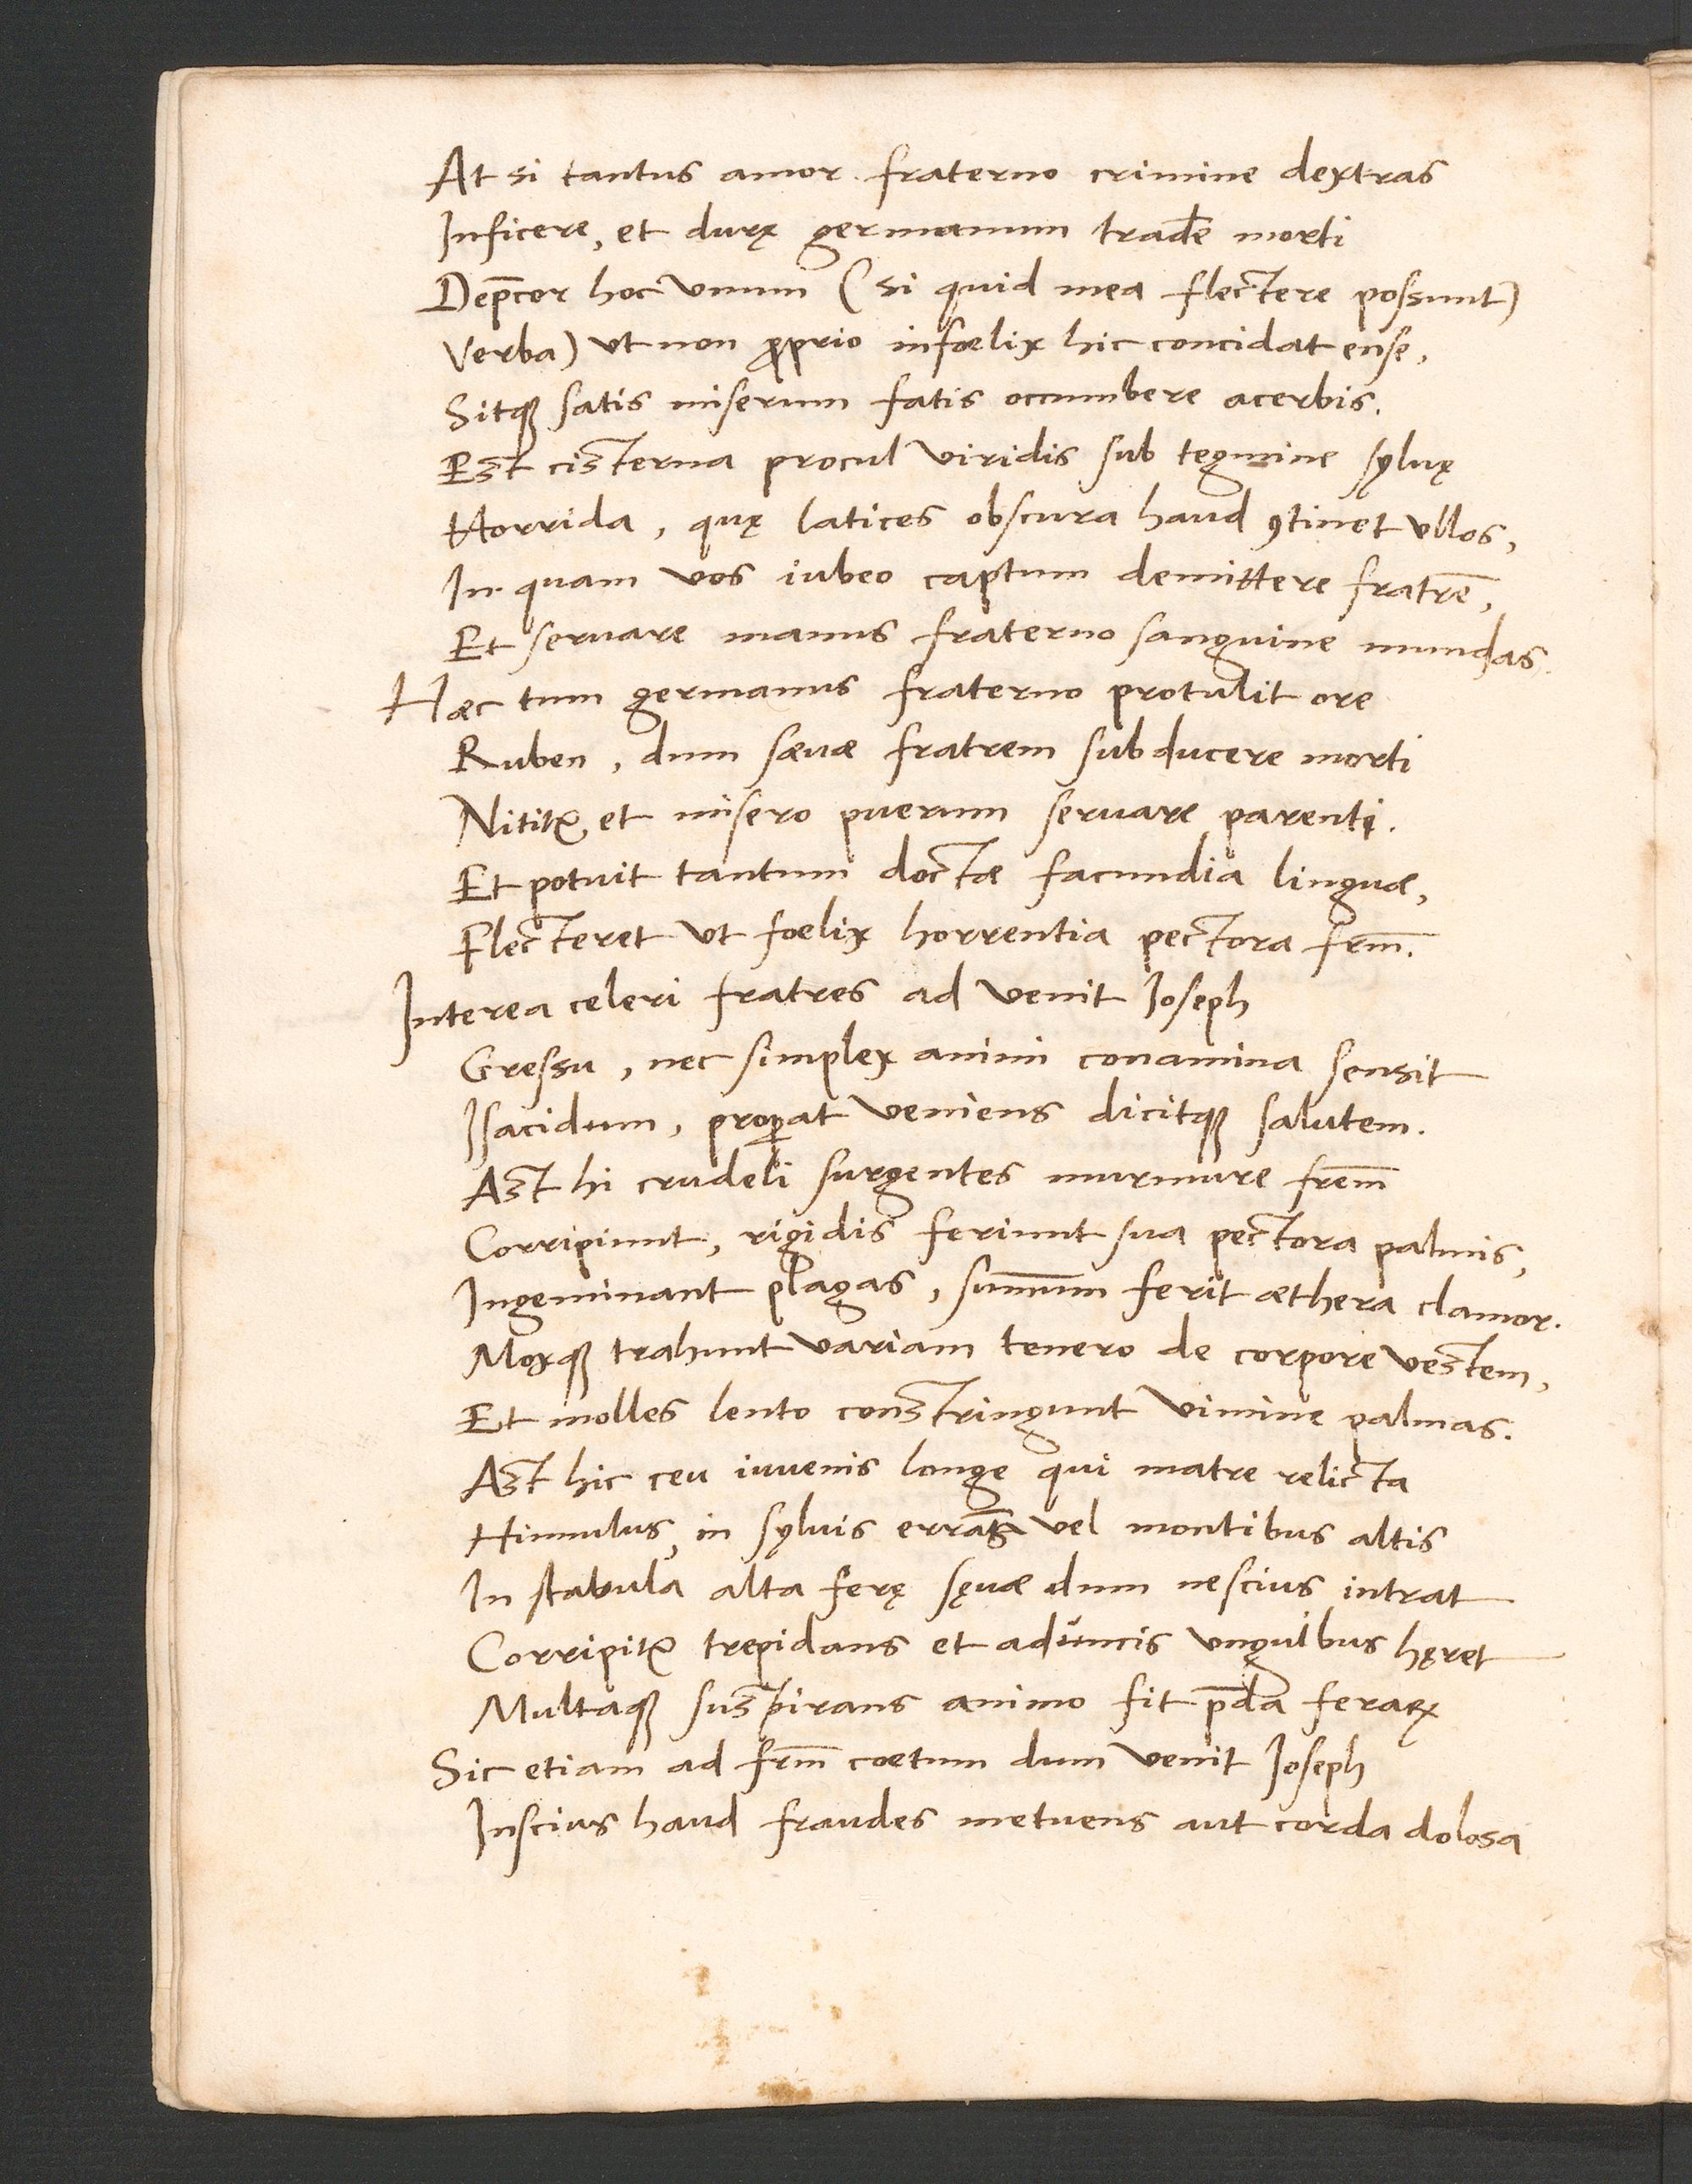 At si tantus amor. fraterno crimine dextras
Inficere, et durę germanum trad̄e morti
Dep̄cor hoc vnum (si quid mea flectere possunt)
Verba) vt non ꝓprio infœlix hic concidat ense,
Sitqꝫ satis miserum fatis occumbere acerbis.
Est cisterna procul viridis sub tegmine sylvę
Horrida, quę latices obscura haud ꝯtinet vllos,
In quam vos iubeo captum demittere fratrē,
Et servare manus fraterno sanguine mundas.
Hæc tum germanus fraterno protulit ore
Ruben, dum sævæ fratrem subducere morti
Nititꝰ et misero puerum servare parenti.
Et potuit tantum doctæ facundia linguæ,
Flecteret vt fœlix horrentia pectora fr̄m.
Interea celeri fratres ad venit Ioseph
Gressu, nec simplex animi conamina sensit
Isacidum, proꝑat veniens dicitqꝫ salutem.
Ast hi crudeli surgentes murmure fr̄em
Corripiunt, rigidis feriunt sua pectora palmis,
Ingeminant plagas, sum̄um ferit æthera clamor.
Moxqꝫ trahunt variam tenero de corpore vestem,
Et molles lento constringunt vimine palmas.
Ast hic ceu iuvenis longe qui matre relicta
Hinnulus, in sylvis errās vel montibus altis
In stabula alta ferę sęvæ dum nescius intrat
Corripitꝰ trepidans et aduncis vnguibus hęret
Multaqꝫ suspirans animo fit p̄da feraꝝ
Sic etiam ad fr̄m coetum dum venit Ioseph
Inscius haud fraudes metuens aut corda dolosa